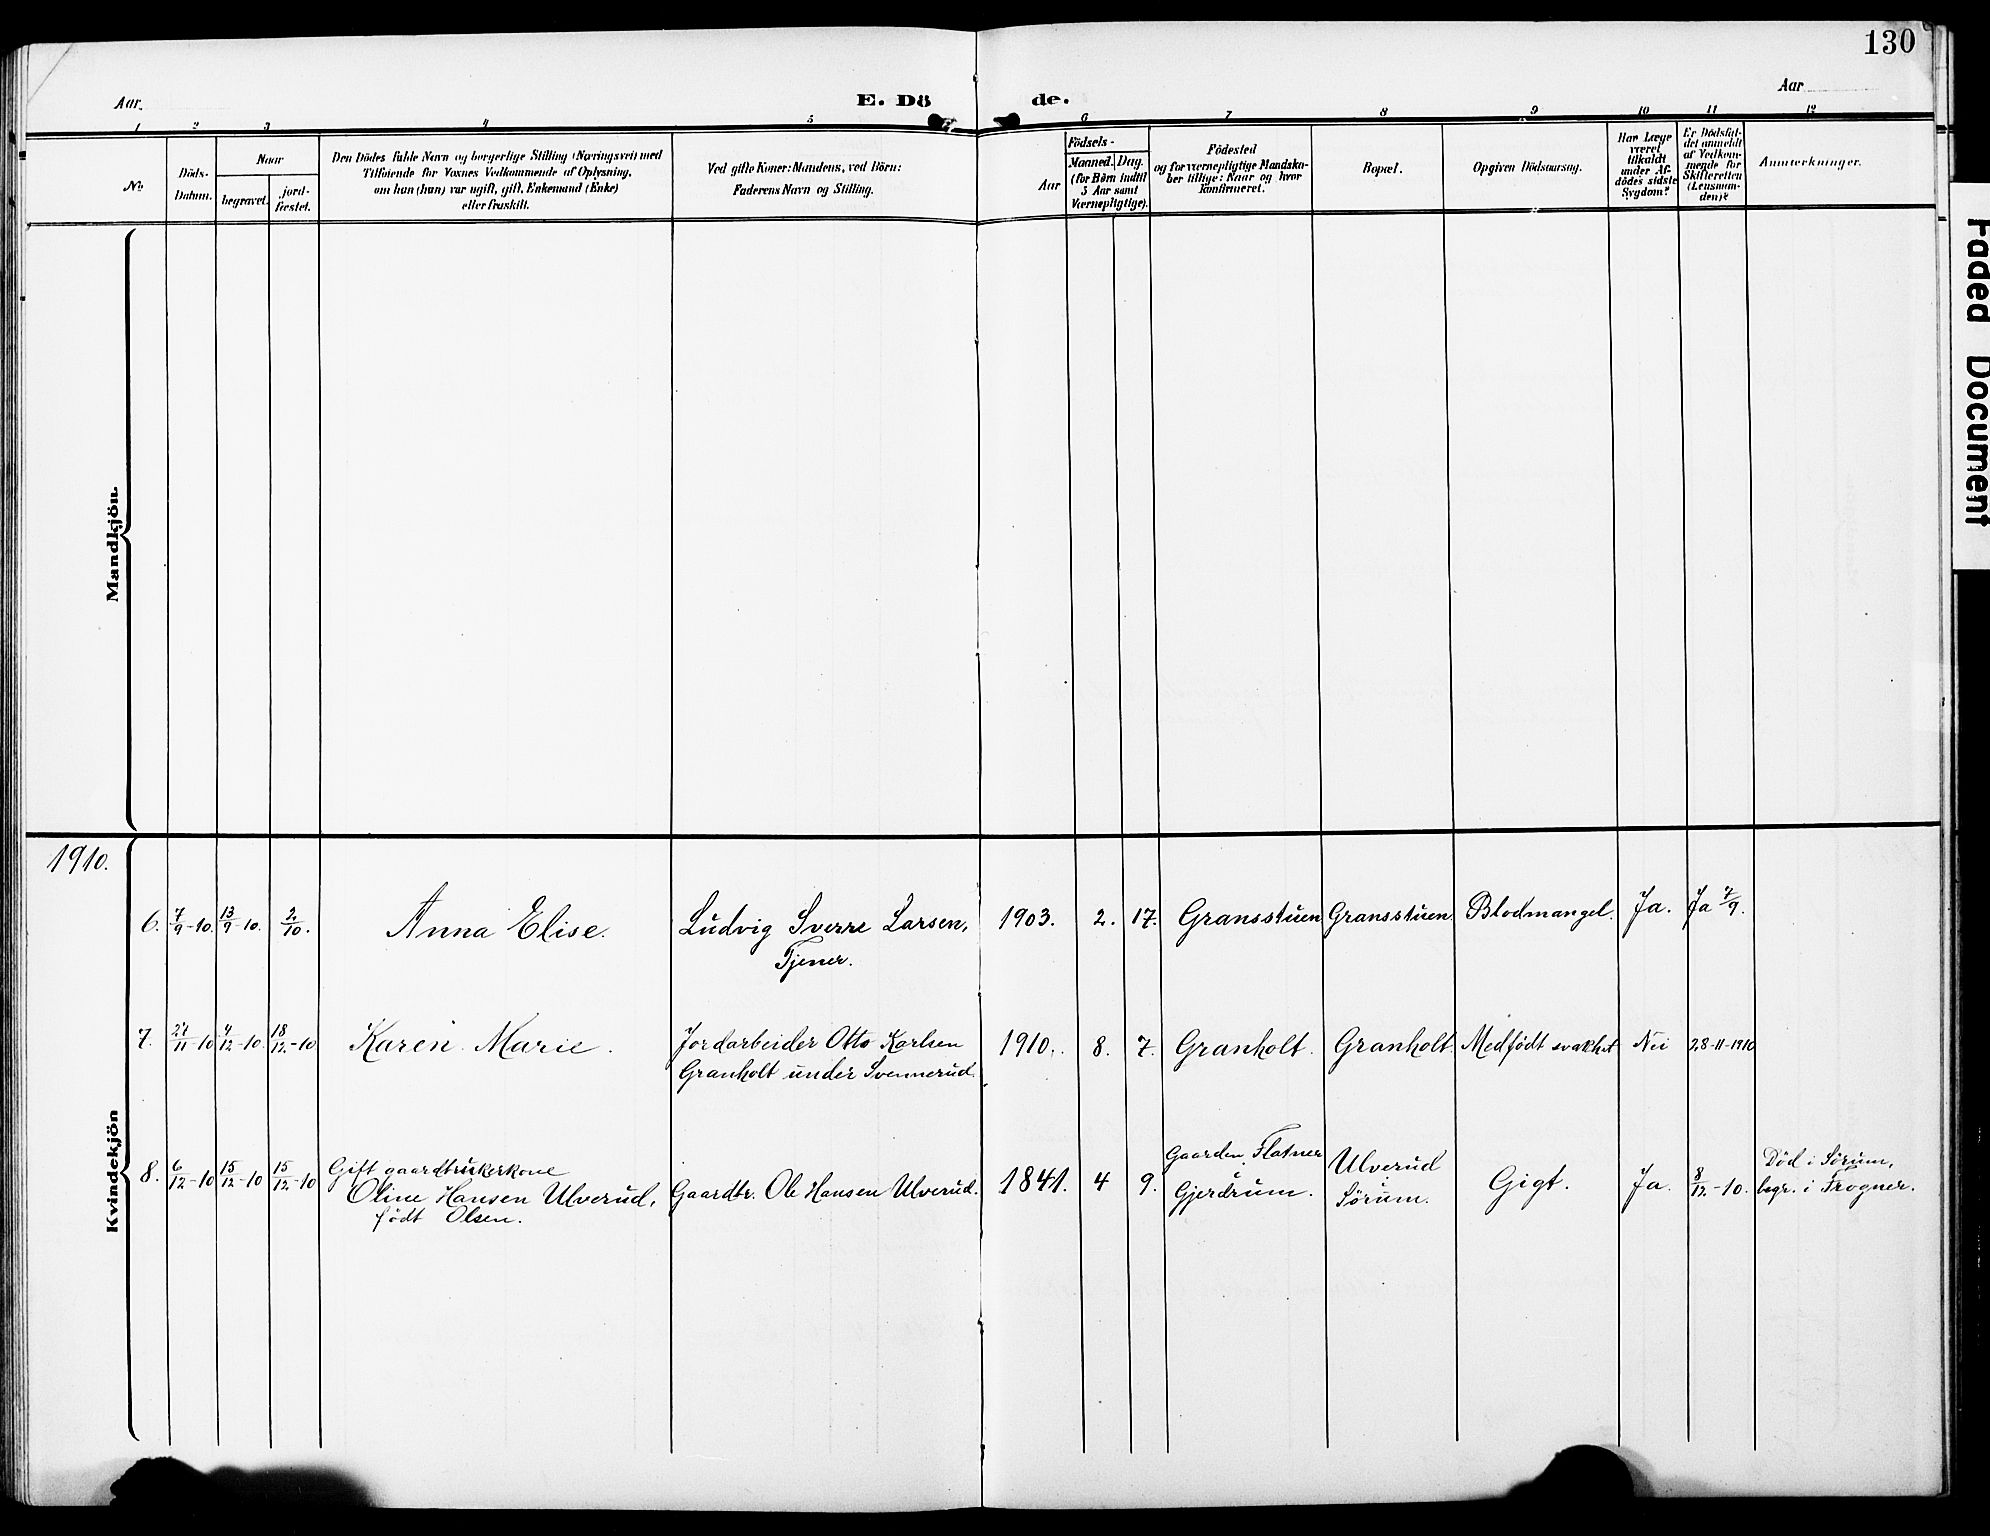 130
Aar
E. Dö
de.
Aar
1 2 3 4 5 6 7 8 9 10 11 12
No
Döds-
Datum.
Naar
begravet.
jord-
fæstet.
Den Dödes fulde Navn og borgerlige Stilling (Næringsvei) med
Tilföiende för Voxnes Vedkommende af Oplysning,
om han (hun) var ugift, gift, Enkemand (Enke)
eller fraskilt.
Ved gifte Koner: Mandens, ved Börn:
Faderens Navn og Stilling.
Aar
Födsels-
Maaned. Dag.
(for Börn indtil
5 Aar samt
Værnepligtige).
Födested
og for værnepligtige Mandska-
ber tillige: Naar og hvor
konfirmeret.
Bopæl.
Opgiven Dödsaarsag.
Har Læge
været
tilkaldt
under Af-
dödes sidste
Sygdom?
Er Dödsfal-
det anmeldt
af Vedkom-
mende for
Skifteretten
(Lensman-
den)?
Anmærkninger.
Faded Document
Mandkjön.
1910.
Kvindekjön
6. 7/9-10. 13/9-10. 2/10. Anna Elise. Ludvig Sverre Larsen, 1903. 2. 17. Gransstuen Gransstuen Blodmangel. Ja. Ja 7/9.
Tjener.
7. 27/11-10 4/12-10. 18/12-10 Karen Marie. Jordarbeider Otto Karlsen 1910. 8. 7. Granholt. Granholt. Medfödt svakhet Nei 28-11-1910
Granholt under Svennerud.
8. 6/12-10 15/12-10 15/12-10 Gift gaardbrukerkone Gaarden Flatner Ulverud Död i Sörum,
Oline Hansen Ulverud, Gaardbr. Ole Hansen Ulverud. 1841. 4 9. i Gjerdrum. Sörum. Gigt. Ja. 8/12-10. begr. i Frogner.
födt Olsen.